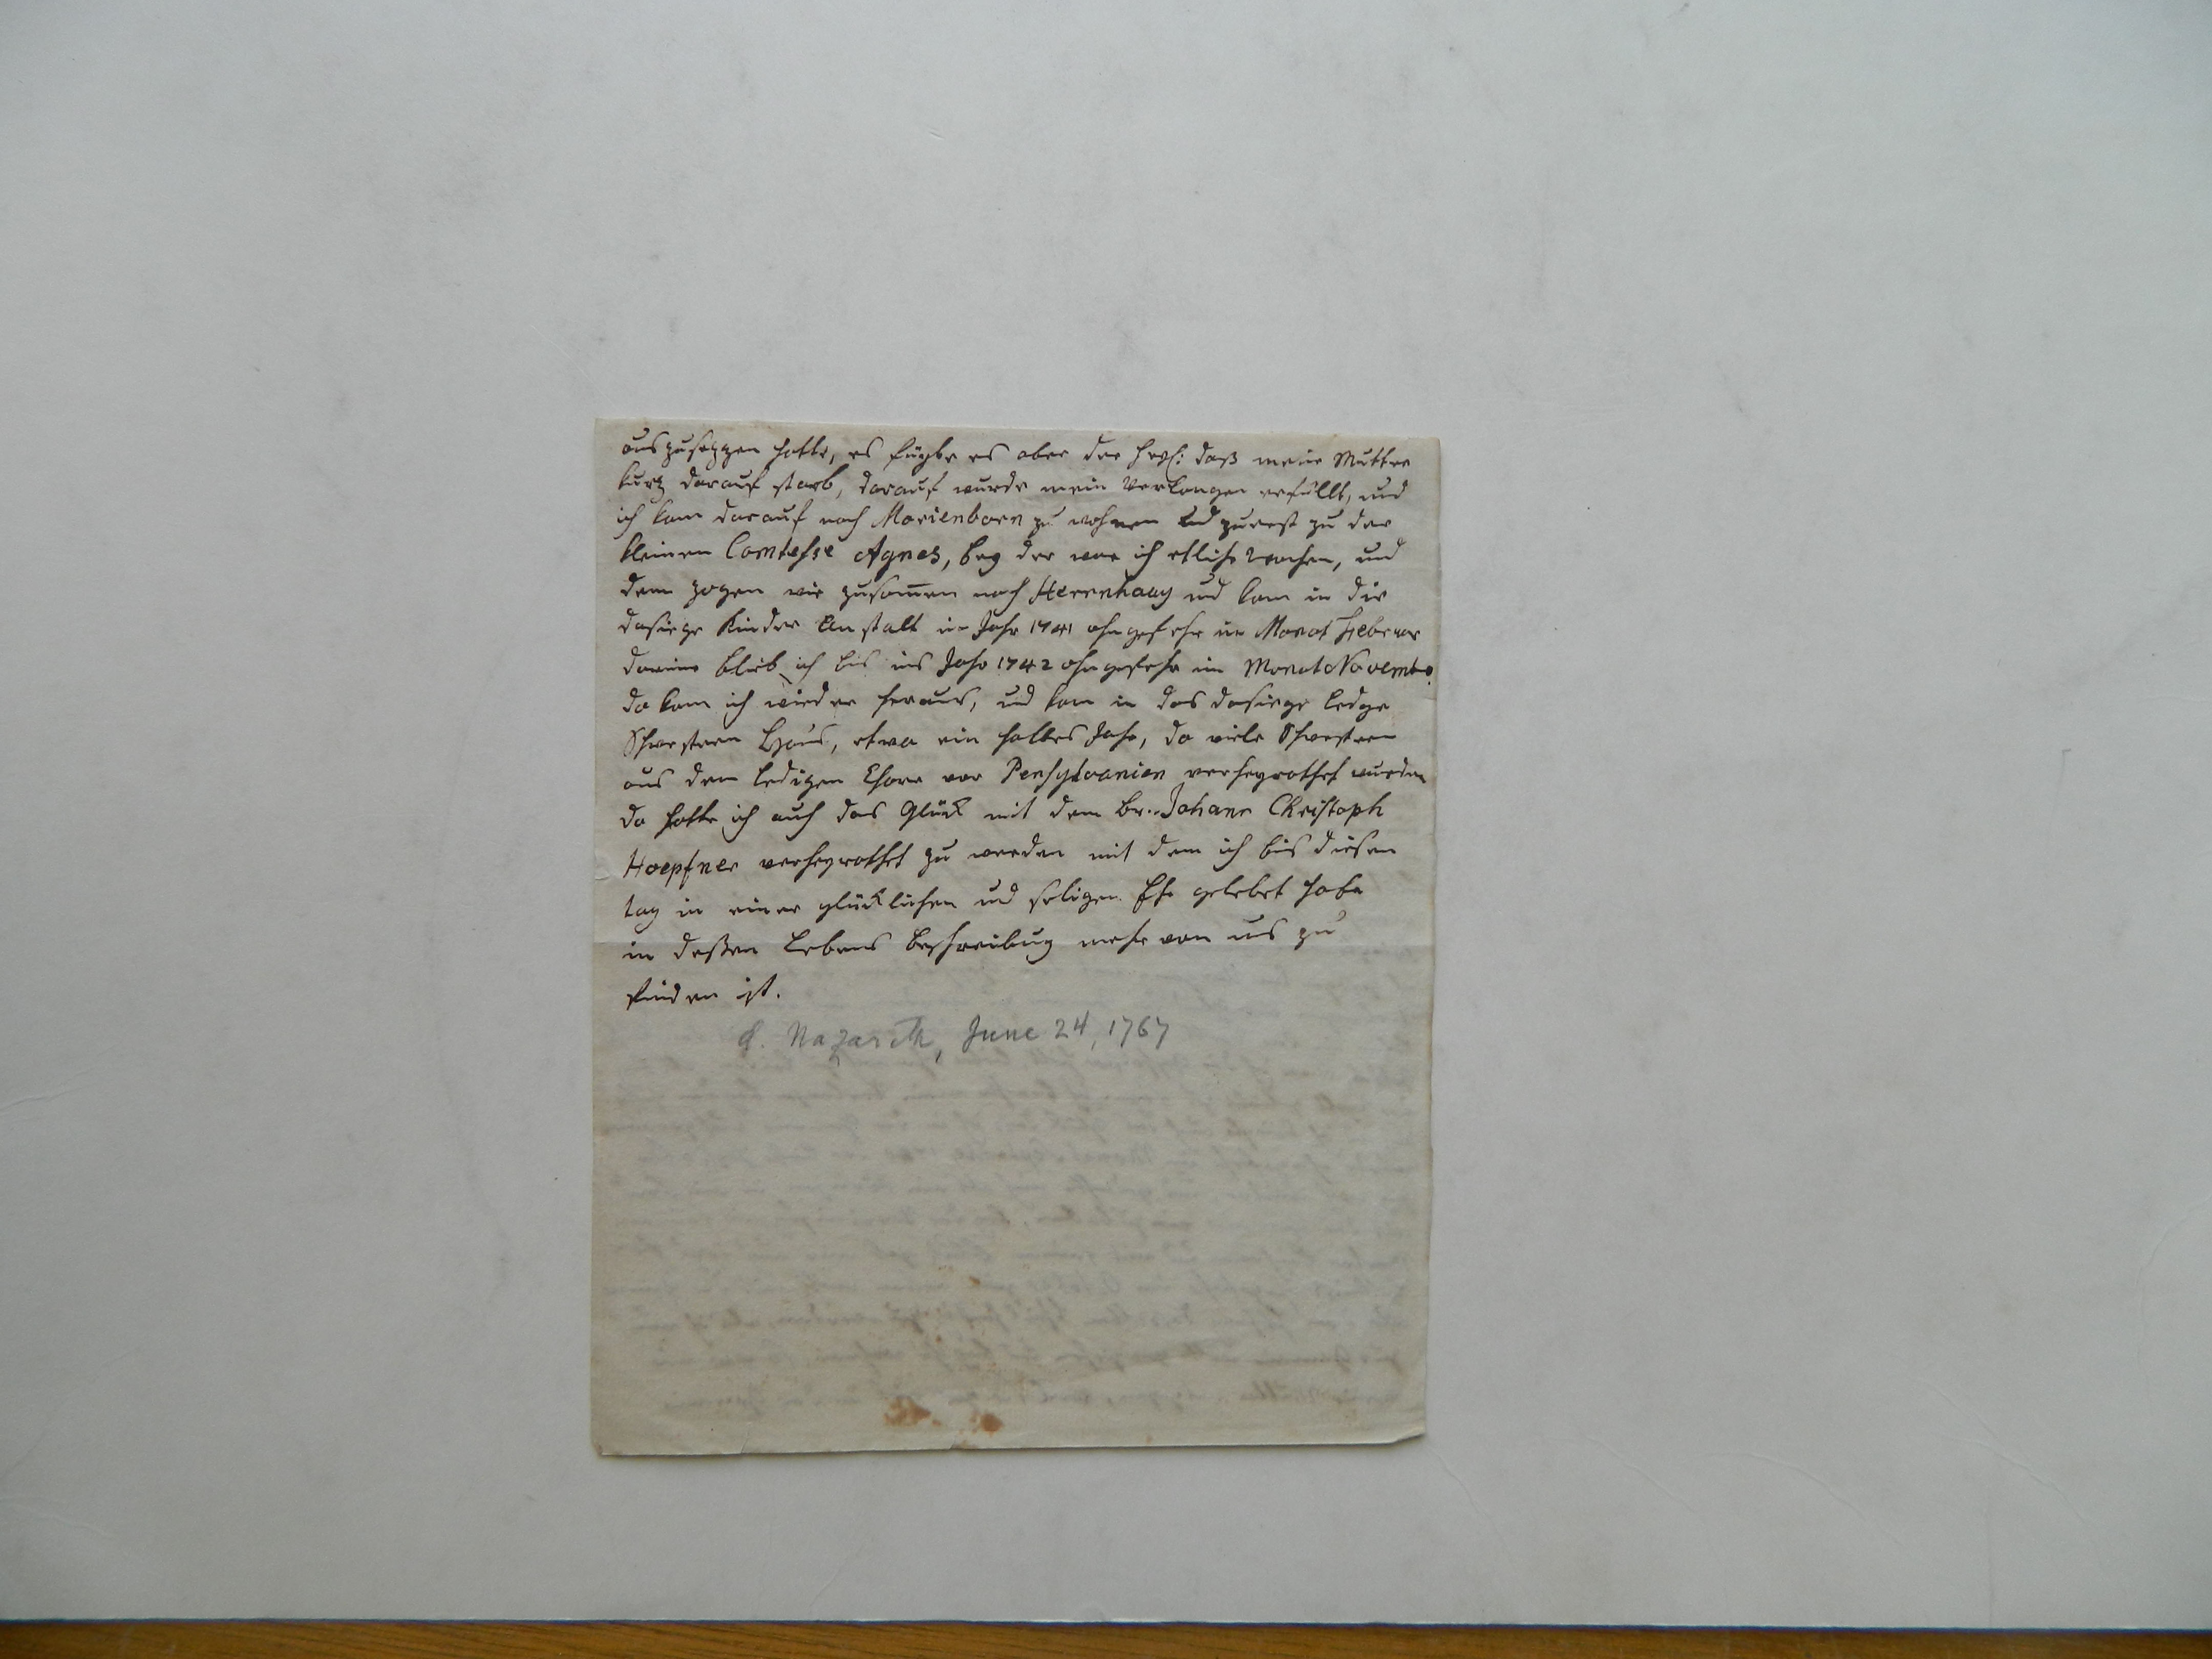 auszusetzen hatte, es fügte es aber der Hey: daß meine Mutter
kurtz darauf starb, darauf wurde mein Verlangen erfüllt, und
ich kam darauf nach Marienborn zu wohnen und zuerst zu der
kleinen Comtesse Agnes, bey der war ich etliche Wochen, und
dann zogen wir zusam̅en nach Herrnhaag und kam in die
dasiege Kinder Anstalt im Jahr 1741 ohngefehr im Monat Februar
darinn blieb ich bis ins Jahr 1742 ohngefehr im Monat Novembr.
da kam ich wieder heraus, und kam in das dasiege ledge
Schwestern Haus, etwa ein halbes Jahr, da viele Schwestern
aus dem ledigen Chore vor Pensylvanien verheyrathet wurden
da hatte ich auch das Glück mit dem Br. Johann Christoph
Hoepfner verheyrathet zu werden mit dem ich bis diesen
tag in einer glücklichen und seligen Ehe gelebet habe
in deßen Lebens beschreibung mehr von uns zu
finden ist.
d. Nazareth, June 24, 1767